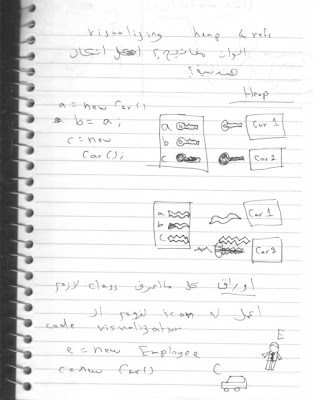 visualizing heap & refs
الوان مفاتيح؟ اشكال
هندسية؟
Heap
a = new Car()
b = a;
c = new
Car();
a
b
c
Car 1
Car 2
a
b
c
Car 1
Car 2
أوراق كل ما اعرف class لازم
اعمل له icon لزوم ال
code visualization
e = new Employee
c = new Car()
E
C